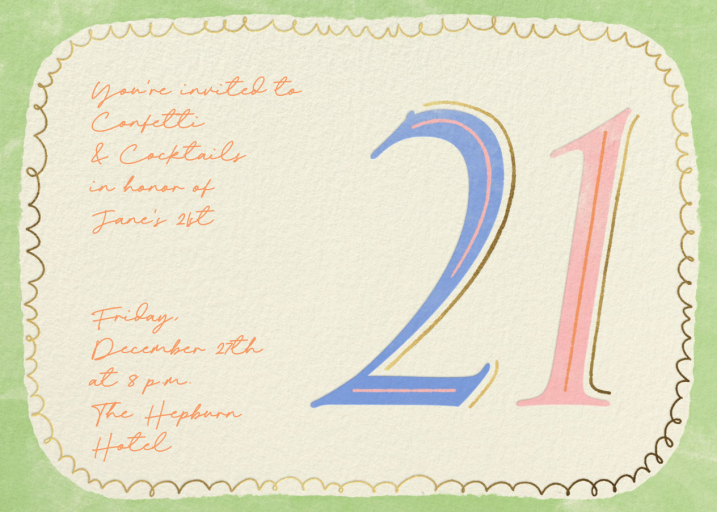 You're invited to
Confetti
& Cocktails
in honor of
Jane's 21st
Friday,
December 27th
at 8 p.m.
The Hepburn
Hotel
21